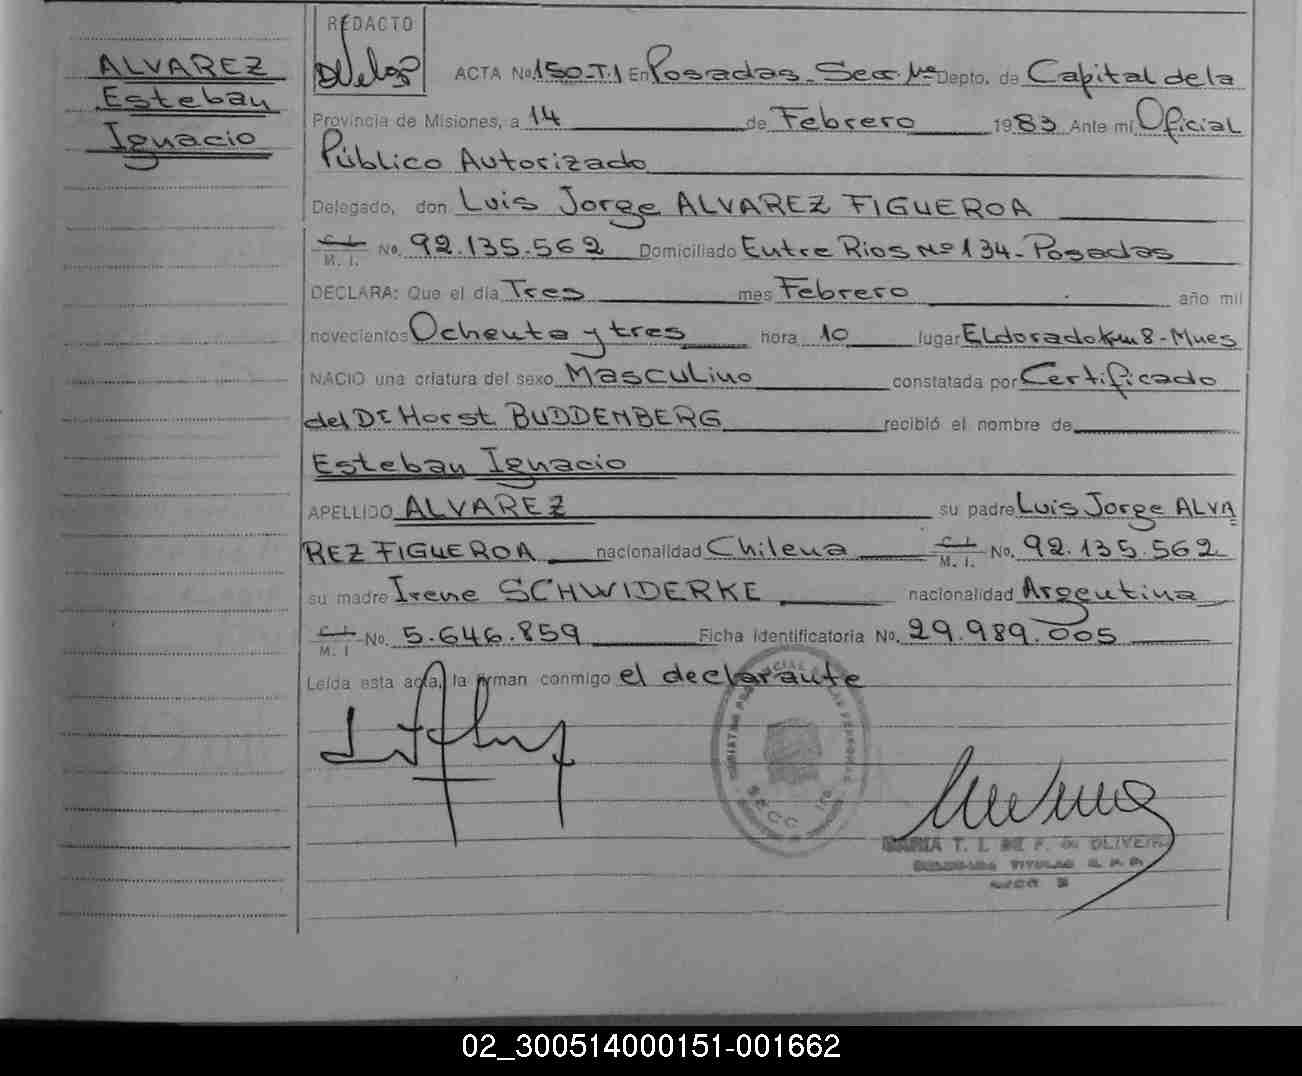 ALVAREZ
Esteban
Ignacio
REDACTO
ACTA No. 150-T.1 En Posadas Secc. 1ra Depto. de Capital de la
Provincia de Misiones, a 14 de Febrero 1983 Ante mi Oficial
Público Autorizado
Delegado, don Luis Jorge ALVAREZ FIGUEROA
C. I. M. I. No. 92.135.562 Domiciliado Entre Rios Nº 134 - Posadas
DECLARA: Que el día Tres mes Febrero año mil
novecientos Ochenta y tres hora 10 lugar Eldorado Km 8 - Mnes
NACIO una criatura del sexo Masculino constatada por Certificado
del Dr Horst BUDDENBERG recibió el nombre de
Esteban Ignacio
APELLIDO ALVAREZ su padre Luis Jorge ALVA
REZ FIGUEROA nacionalidad Chilena C. I. M. I. No. 92.135.562
su madre Irene SCHWIDERKE nacionalidad Argentina
C. I. M. I No. 5.646.859 Ficha Identificatoria No. 29.989.005
Leída esta acta, la firman conmigo el declarante
REGISTRO PROVINCIAL DE LAS PERSONAS
SECC 1ra.
MARIA T. I. DE F. DE OLIVEIRA
DELEGADA TITULAR R. P. P.
02_300514000151-001662